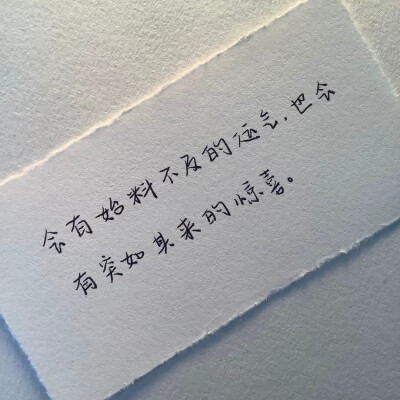 会有始料不及的运气,也会
有突如其来的惊喜。